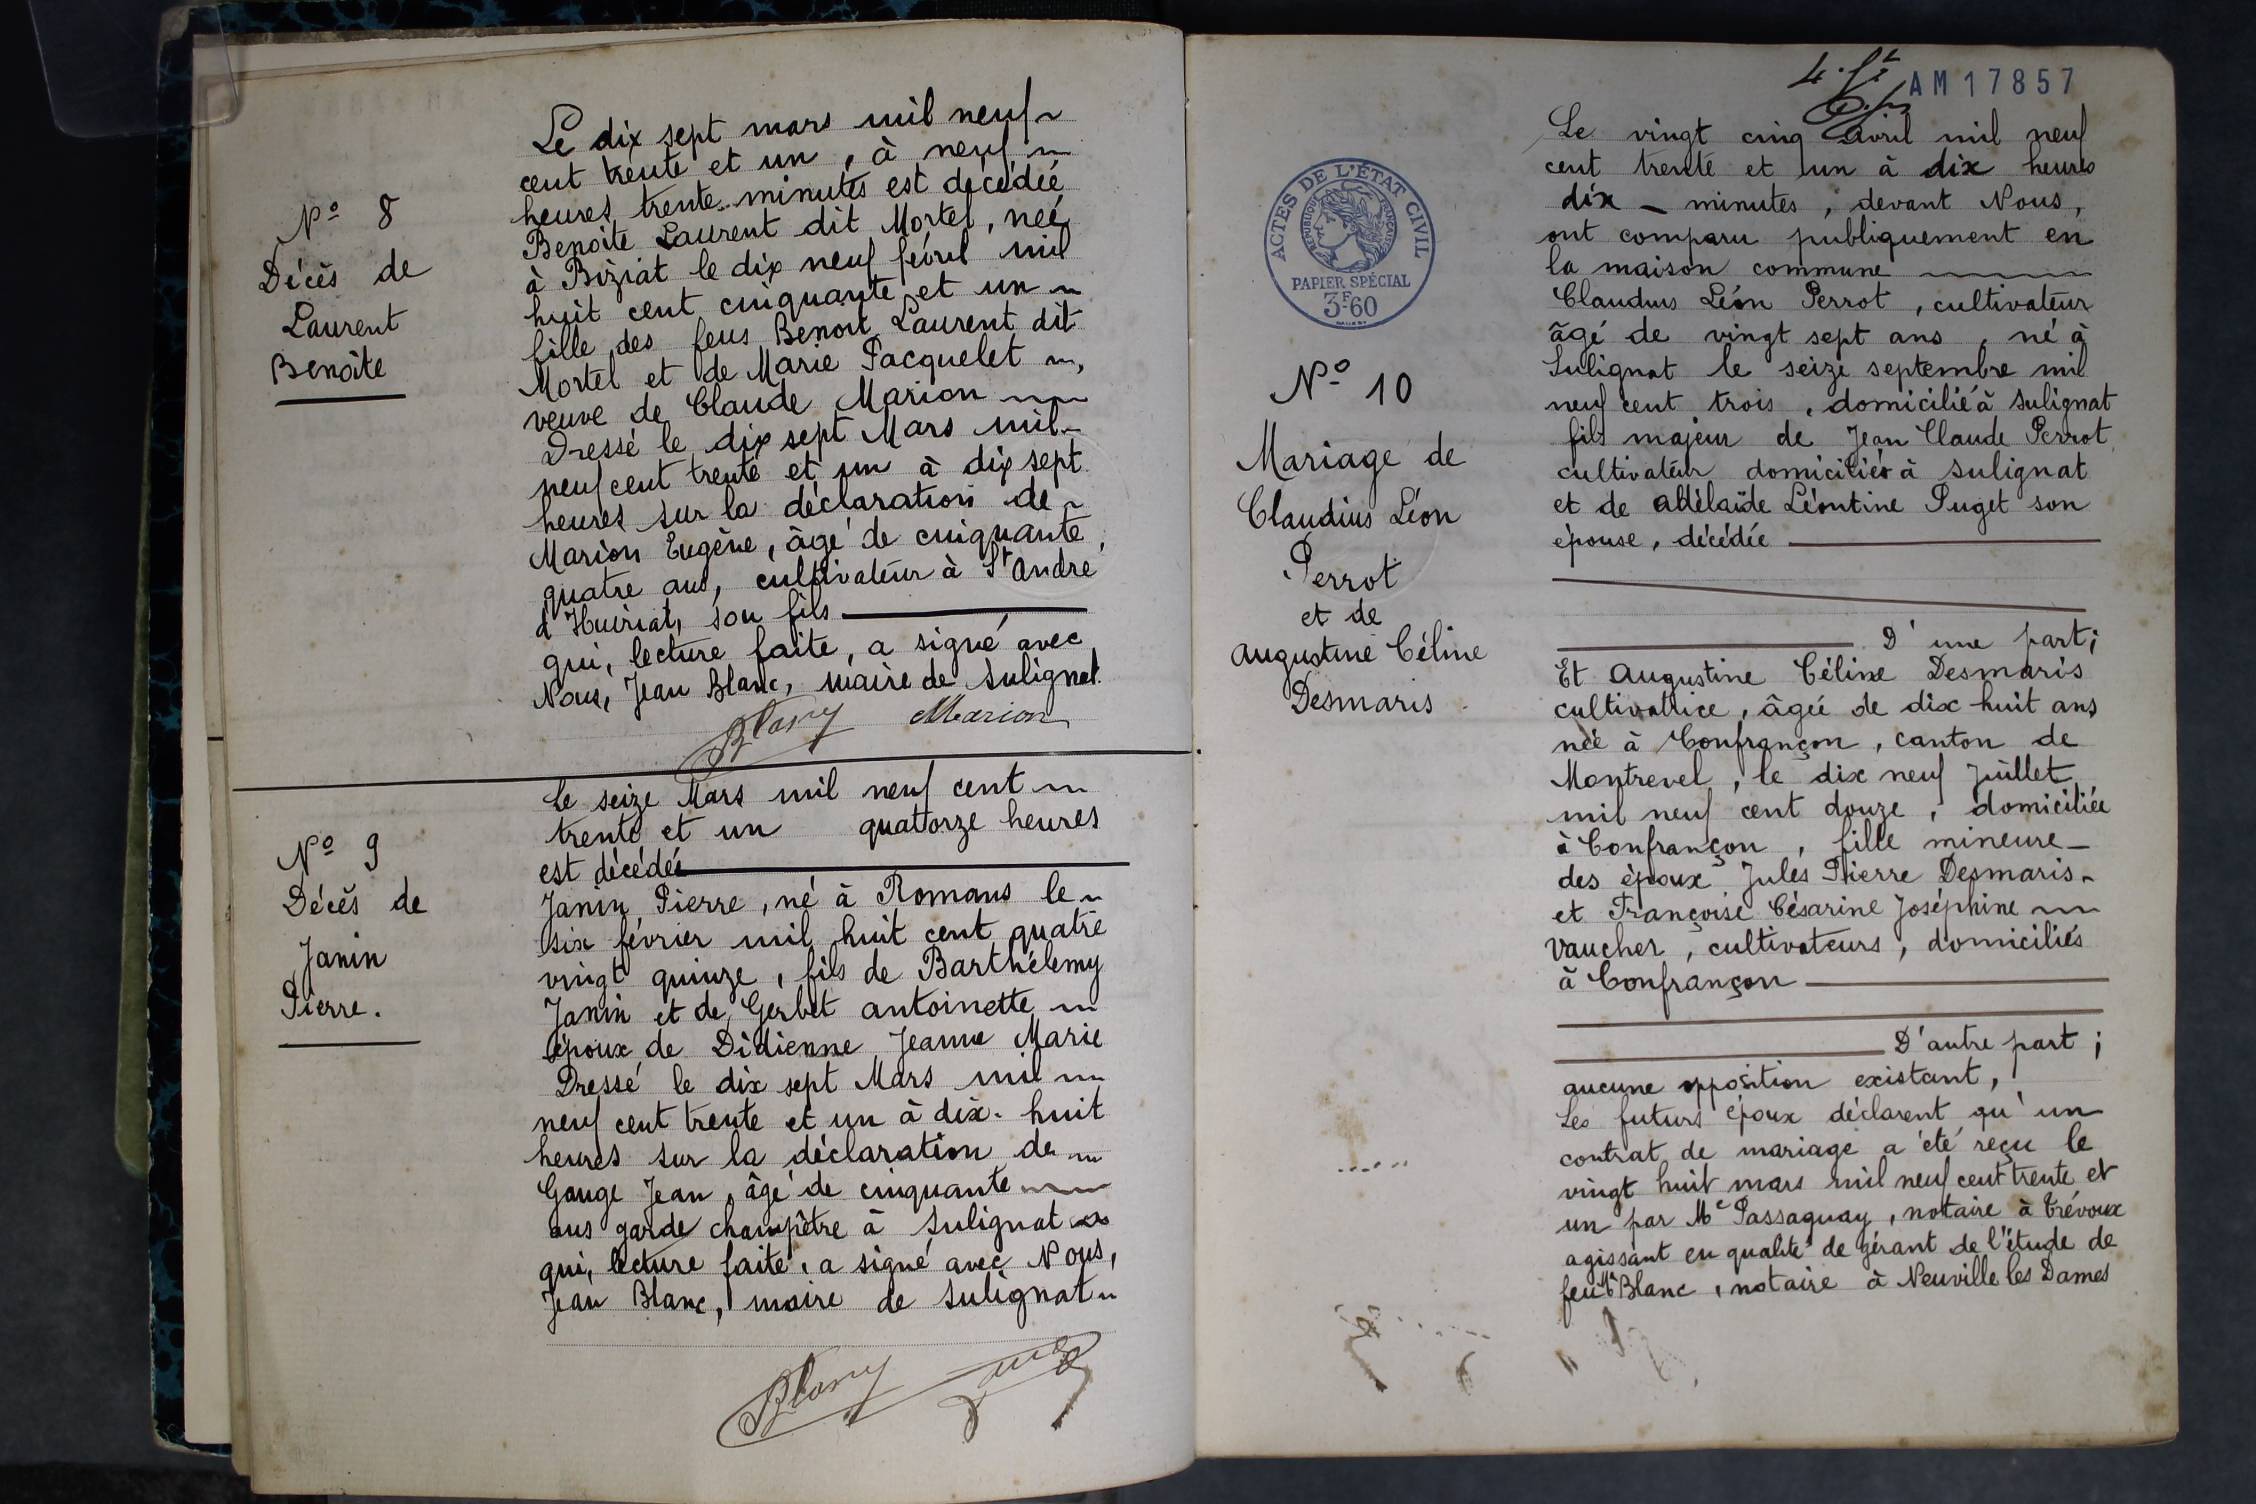 Nº 8
Décès de
Laurent
Benoîte
Le dix sept mars mil neuf
cent trente et un, à neuf
heures trente minutes est décédée
Benoite Laurent dit Mortel, neé
à Biziat le dix neuf févril mil
huit cent cinquante et un
fille des feus Benoit Laurent dit
Mortel et de Marie Pacquelet,
veuve de Claude Marion
Dressé le dix sept Mars mil
neuf cent trente et un à dix sept
heures sur la déclaration de
Marion Eugène, âgé de cinquante
quatre ans, cultivateur à St André
d'Huiriat, son fils
qui, lecture faite, a signé avec
Nous, Jean Blanc, maire de Sulignat.
Blanc Marion
Nº 9
Décès de
Janin
Pierre.
Le seize Mars mil neuf cent
trente et un quatorze heures
est décédé
Janin Pierre, né à Romans le
six février mil huit cent quatre
vingt quinze, fils de Barthélemy
Janin et de Gerbet antoinette
époux de Didienne Jeanne Marie
Dressé le dix sept Mars mil
neuf cent trente et un à dix-huit
heures sur la déclaration de
Gouge Jean, âgé de cinquante
ans garde champêtre à Sulignat
qui, lecture faite, a signé avec Nous,
Jean Blanc, maire de Sulignat
Blanc
AM17857
ACTES DE L'ÉTAT CIVIL
RÉPUBLIQUE FRANÇAISE
PAPIER SPÉCIAL
3F.60
Nº 10
Mariage de
Claudius Léon
Perrot
et de
Augustine Céline
Desmaris
Le vingt cinq avril mil neuf
cent trente et un à dix heures
dix - minutes, devant Nous,
ont comparu publiquement en
la maison commune
Claudius Léon Perrot, cultivateur
âgé de vingt sept ans, né à
Sulignat le seize septembre mil
neuf cent trois, domicilié à Sulignat
fils majeur de Jean Claude Perrot
cultivateur domiciliés à Sulignat
et de Adélaïde Léontine Puget son
épouse, décédée
D'une part;
Et Augustine Céline Desmaris
cultivatrice, âgée de dix huit ans
née à Confrançon, canton de
Montrevel, le dix neuf Juillet
mil neuf cent douze, domiciliée
à Confrançon, fille mineure
des époux Jules Pierre Desmaris
et Françoise Césarine Joséphine
Vaucher, cultivateurs, domiciliés
à Confrançon
D'autre part;
aucune opposition existant,
Les futurs époux déclarent qu'un
contrat de mariage a été reçu le
vingt huit mars mil neuf cent trente et
un par Me Passaquay, notaire à Trévoux
agissant en qualité de gérant de l'étude de
feu Me Blanc, notaire à Neuville les Dames